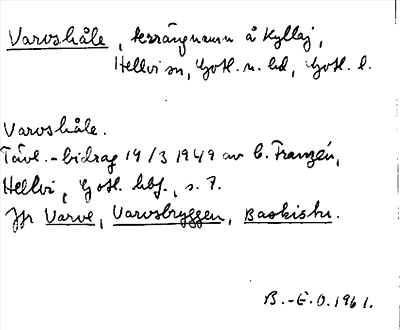 Varvshåle, terrängnamn å Kyllaj,
Hellvi sn, Gotl. n. hd, Gotl. l.
Varvshåle.
Tävl.-bidrag 19/3 1949 av C. Franzén,
Hellvi, Gotl. hbf., s. 7.
Jfr Varve, Varvsbryggen,
B.-E.O. 1961.